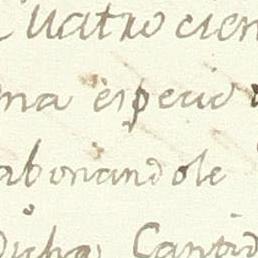 Quatro cien
ma especie
abonandole
dicha Cantid